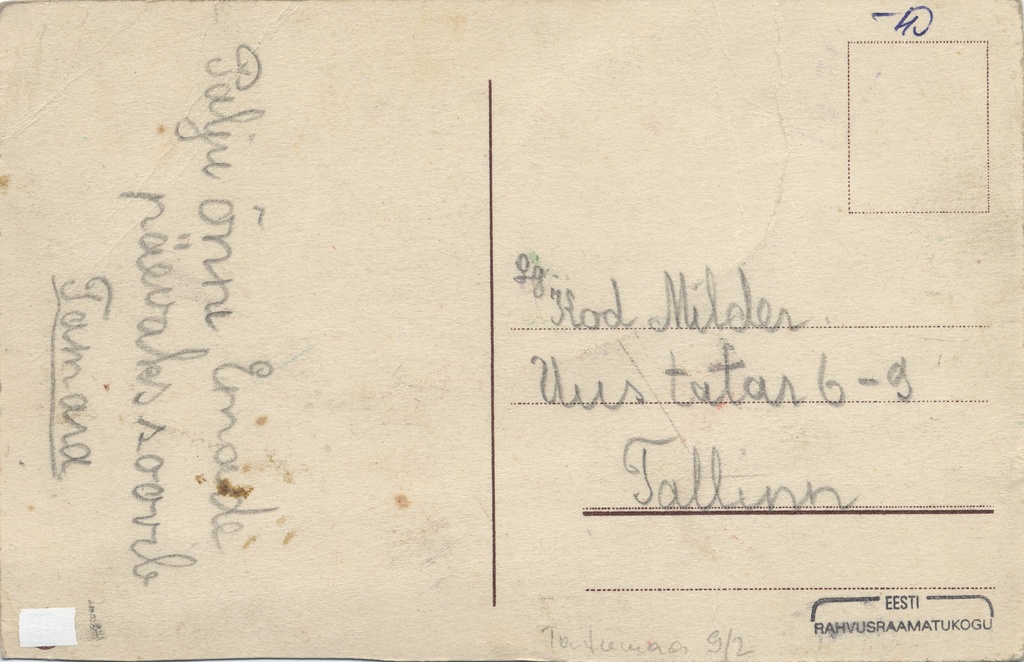 Palju Õnne Emade
päevaks soovib
Tamara
-40
Lg. Kod Milder
Uus tatar 6-9
Tallinn
Tartumaa 9/2
EESTI
RAHVUSRAAMATUKOGU